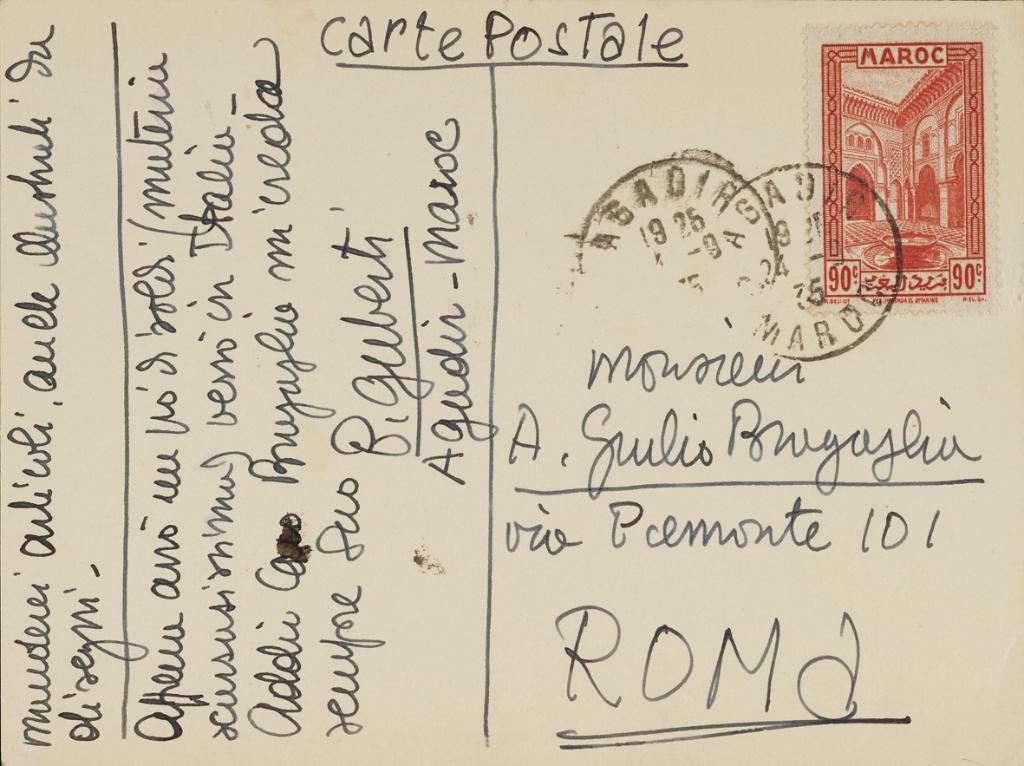 Carte Postale
manderei articoli, anche illustrati da
disegni.
Appena avrò un pò di soldi (materia
scarsissima) verrò in Italia –
Addio Caro Bragaglia mi creda
sempre Suo
P. Giberti
Agadir – Maroc
MAROC
90c 90c
AGADIR
19 25
AGADIR
19 25
24 - 9 35
MAROC
Monsieur
A. Giulio Bragaglia
via Piemonte 101
ROMA